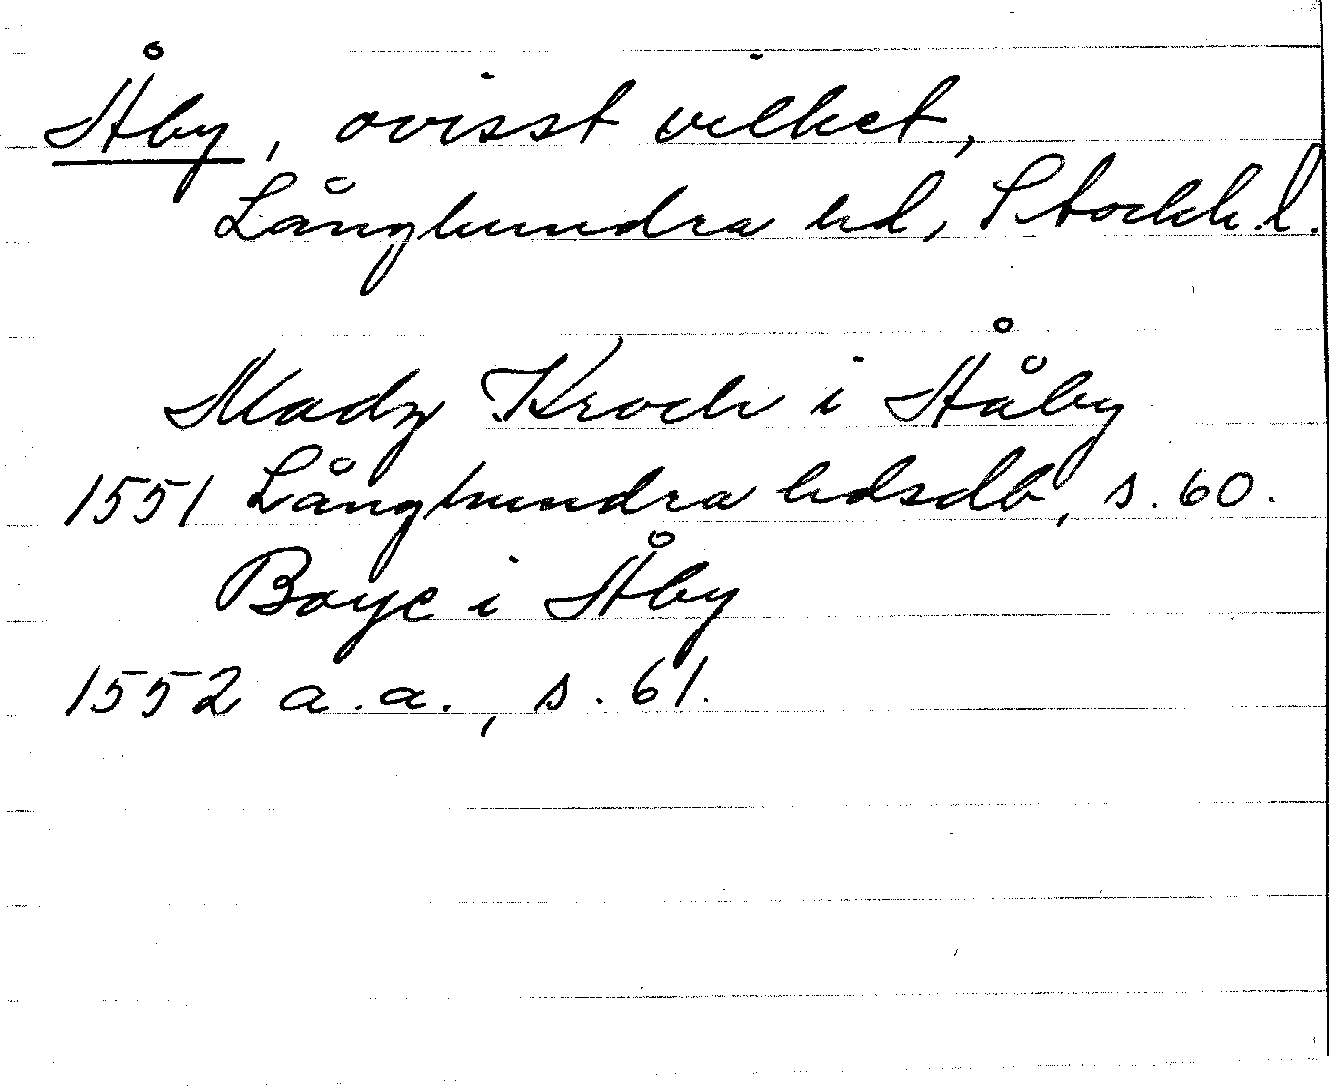 Åby, ovisst vilket,
Långhundra hd, Stockh. l.
Madz Kroch i Ååby
1551 Långhundra hdsdb, s. 60.
Boye i Åby
1552 a.a., s. 61.